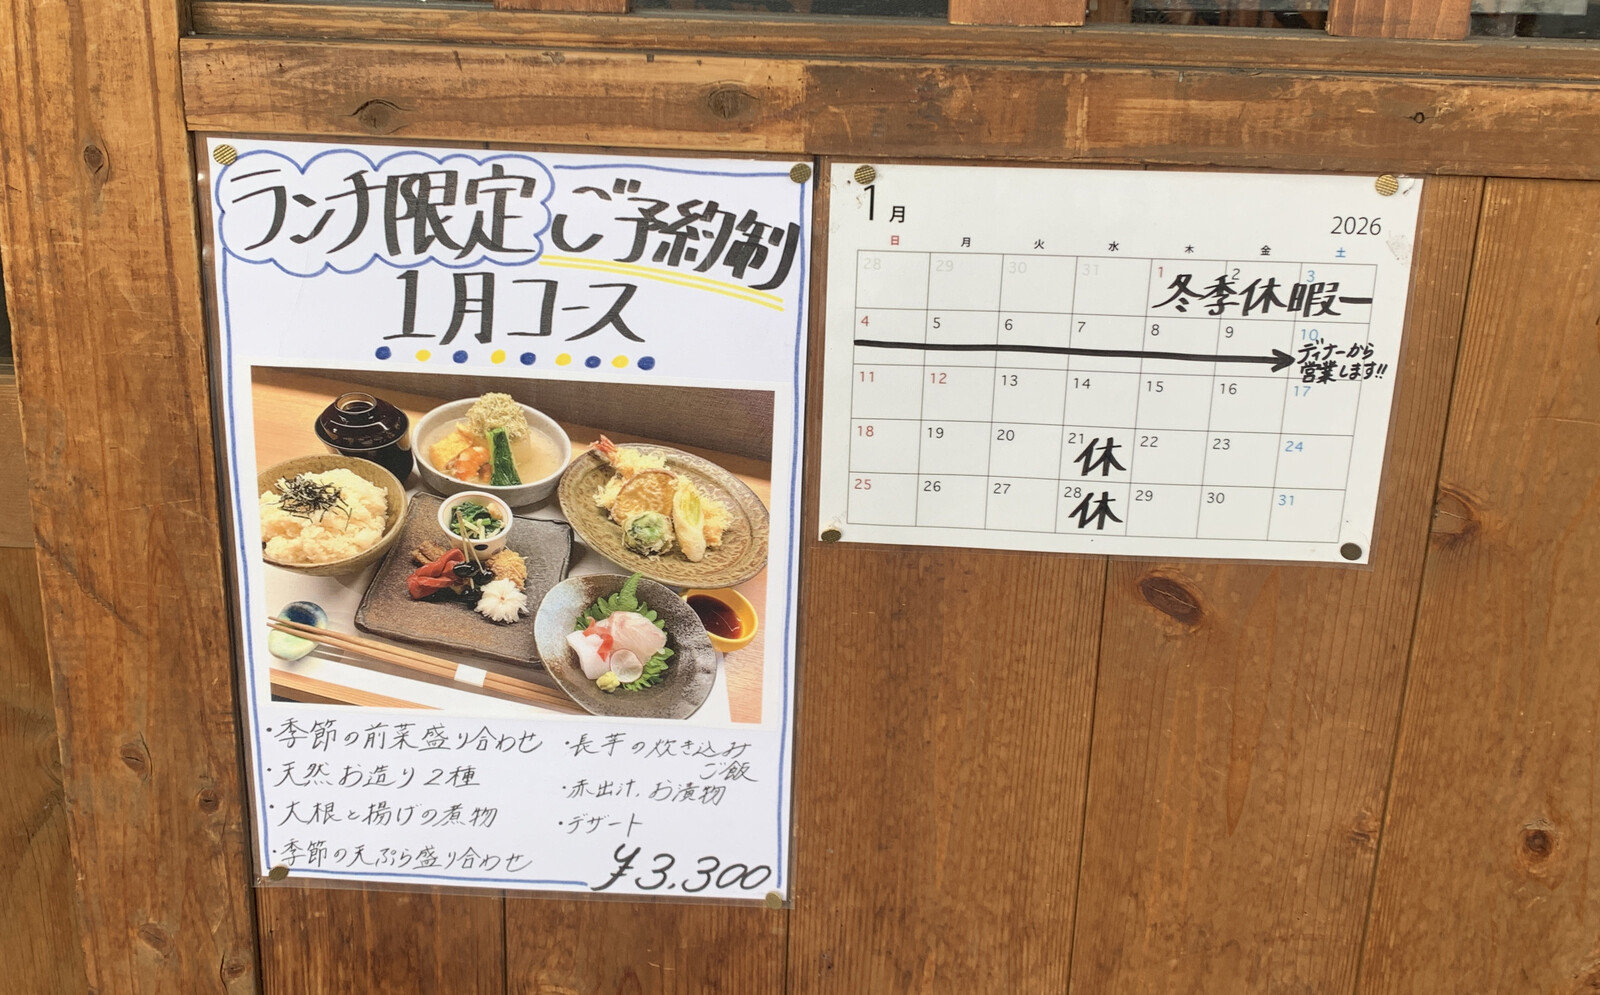 ランチ限定 ご予約制
1月コース
・季節の前菜盛り合わせ
・天然お造り2種
・大根と揚げの煮物
・季節の天ぷら盛り合わせ
・長芋の炊き込み
ご飯
・赤出汁、お漬物
・デザート
¥3.300
1月
2026
日 月 火 水 木 金 土
28 29 30 31 1 2 3
冬季休暇ー
4 5 6 7 8 9 10
ディナーから
営業します!!
11 12 13 14 15 16 17
18 19 20 21 22 23 24
休
25 26 27 28 29 30 31
休